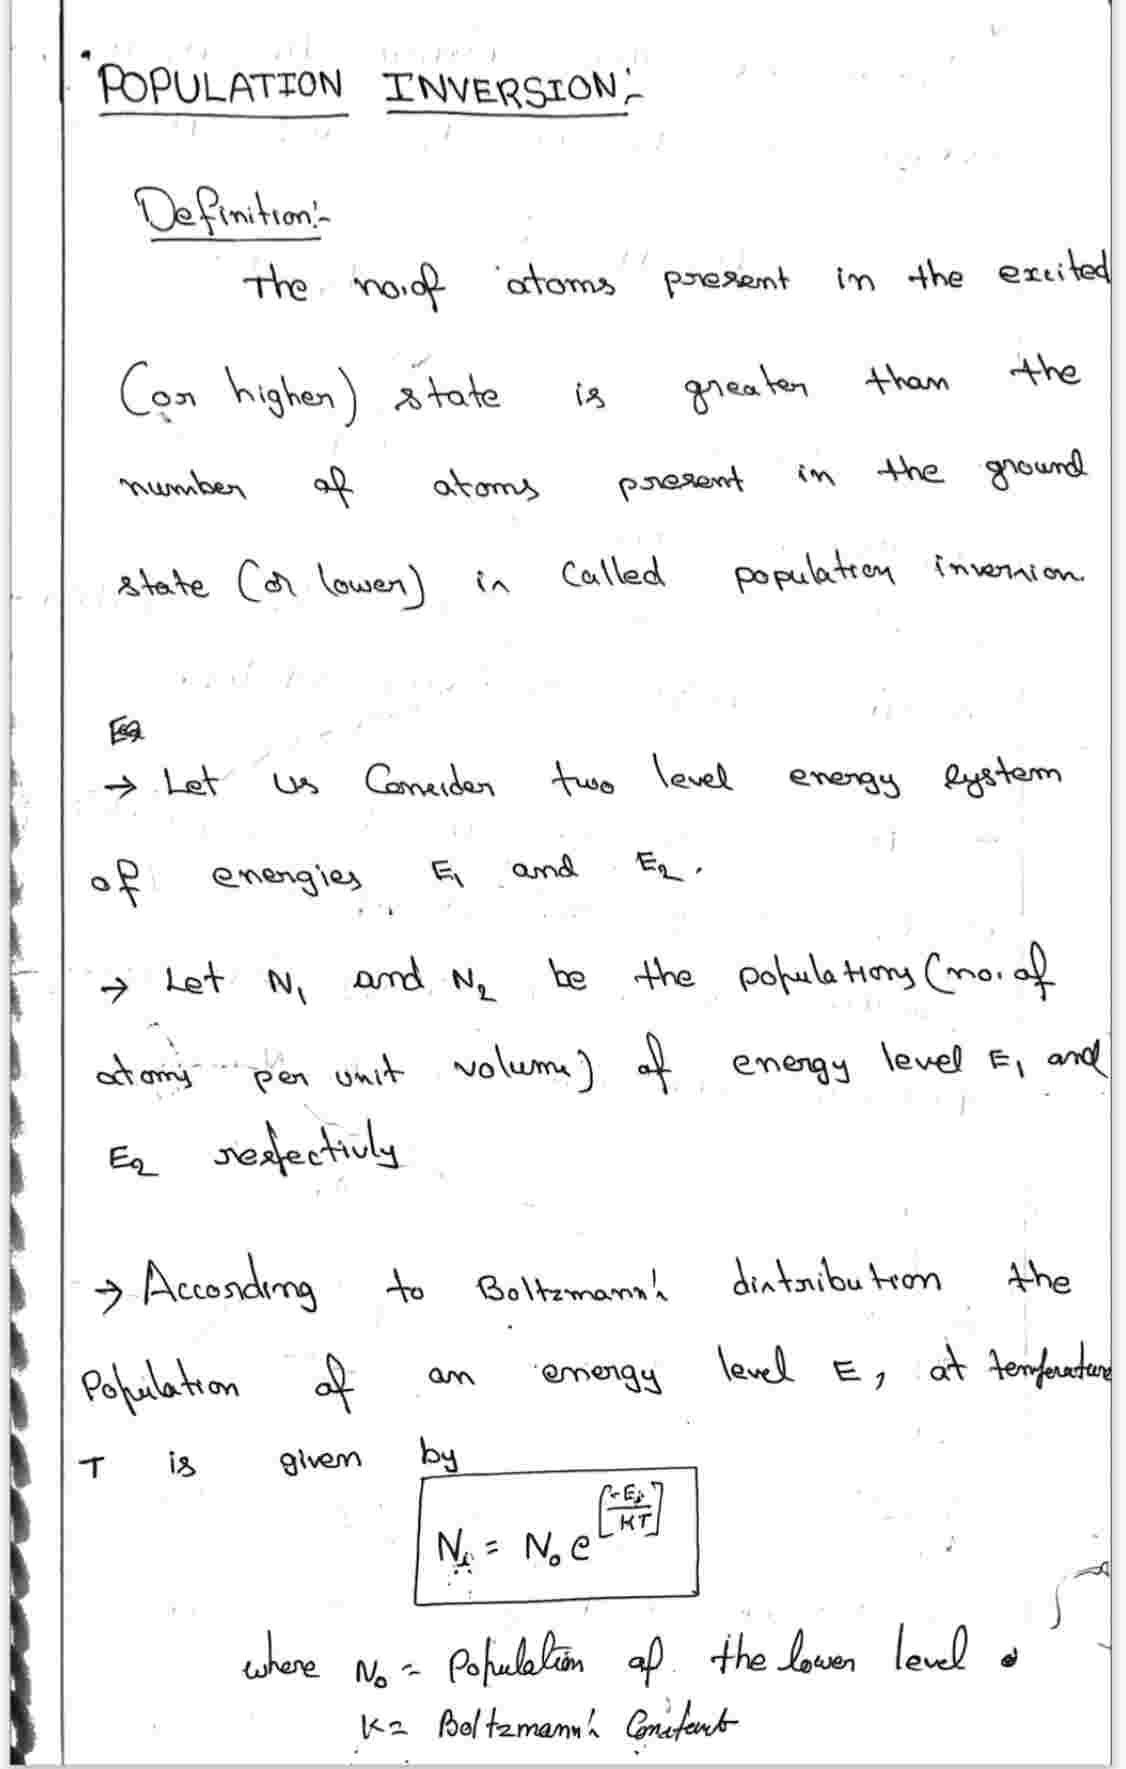 POPULATION INVERSION:-
Definition:-
The no.of atoms present in the excited
(or higher) state is greater than the
number of atoms present in the ground
state (or lower) is called population inversion.
→ Let us Consider two level energy system
of energies E₁ and E₂.
→ Let N₁ and N₂ be the populations (no.of
atoms per unit volume) of energy level E₁ and
E₂ respectivly
→ According to Boltzmann's distribution the
Population of an energy level E, at temperature
T is given by
Nᵢ = N₀ e^[-Eᵢ/KT]
where N₀ = Population of the lower level
K = Boltzmann's Constant